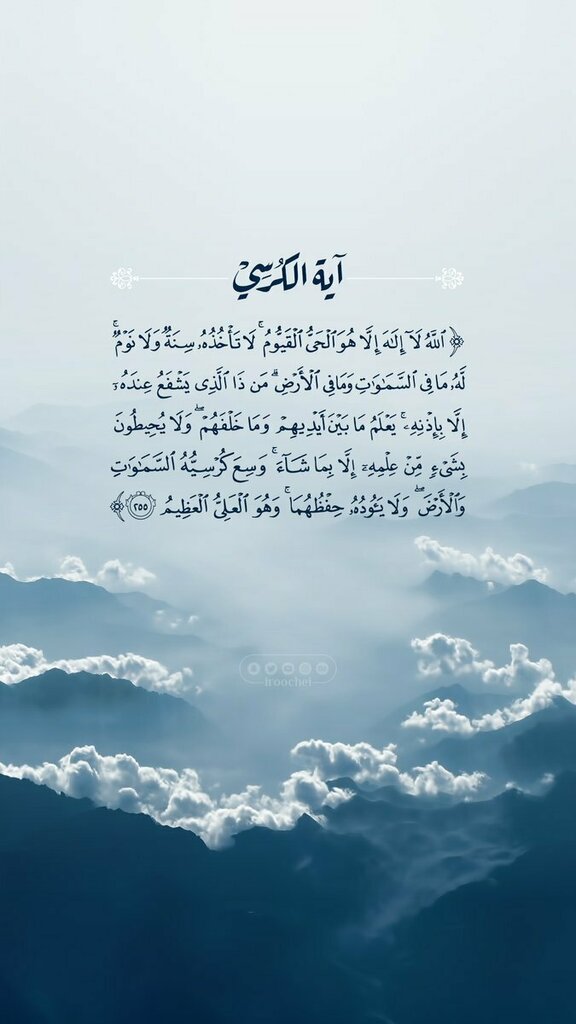 آية الكرسي
﴿ ٱللَّهُ لَآ إِلَٰهَ إِلَّا هُوَ ٱلْحَىُّ ٱلْقَيُّومُ ۚ لَا تَأْخُذُهُۥ سِنَةٌ وَلَا نَوْمٌ ۚ
لَّهُۥ مَا فِى ٱلسَّمَٰوَٰتِ وَمَا فِى ٱلْأَرْضِ ۗ مَن ذَا ٱلَّذِى يَشْفَعُ عِندَهُۥٓ
إِلَّا بِإِذْنِهِۦ ۚ يَعْلَمُ مَا بَيْنَ أَيْدِيهِمْ وَمَا خَلْفَهُمْ ۖ وَلَا يُحِيطُونَ
بِشَىْءٍ مِّنْ عِلْمِهِۦٓ إِلَّا بِمَا شَآءَ ۚ وَسِعَ كُرْسِيُّهُ ٱلسَّمَٰوَٰتِ
وَٱلْأَرْضَ ۖ وَلَا يَـُٔودُهُۥ حِفْظُهُمَا ۚ وَهُوَ ٱلْعَلِىُّ ٱلْعَظِيمُ ٢٥٥ ﴾
iroochei